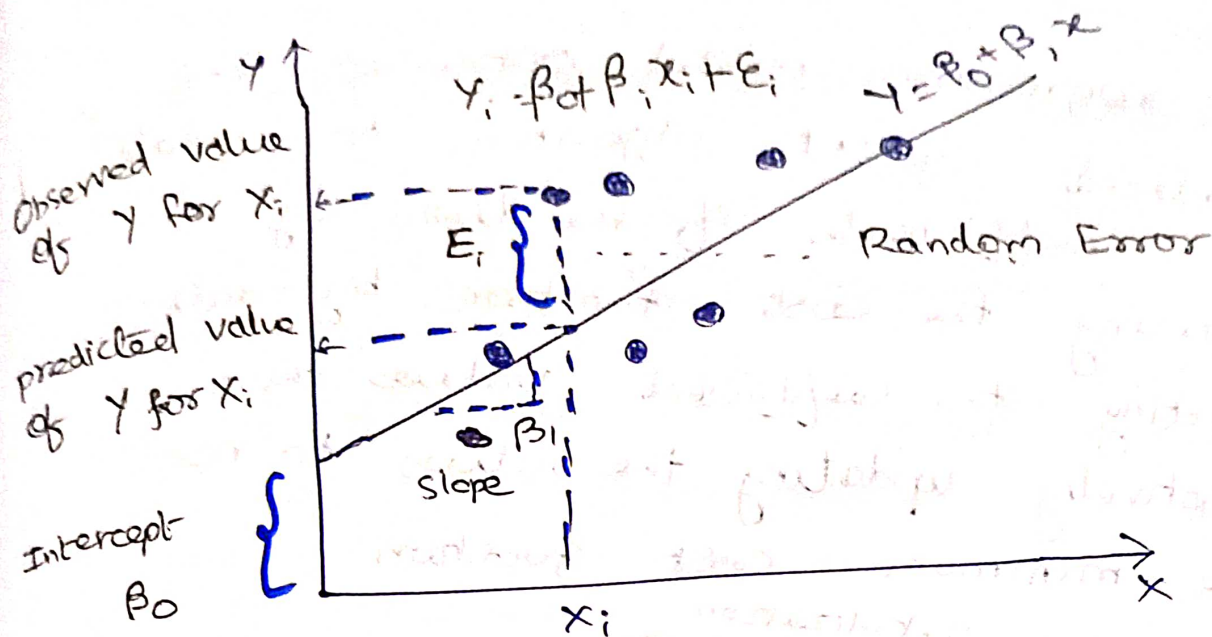 Y
Yᵢ = β₀ + βᵢ xᵢ + Ɛᵢ
Y = β₀ + β₁x
Observed value
of Y for Xᵢ
Eᵢ
Random Error
predicted value
of Y for Xᵢ
β₁
slope
Intercept
β₀
Xᵢ
X